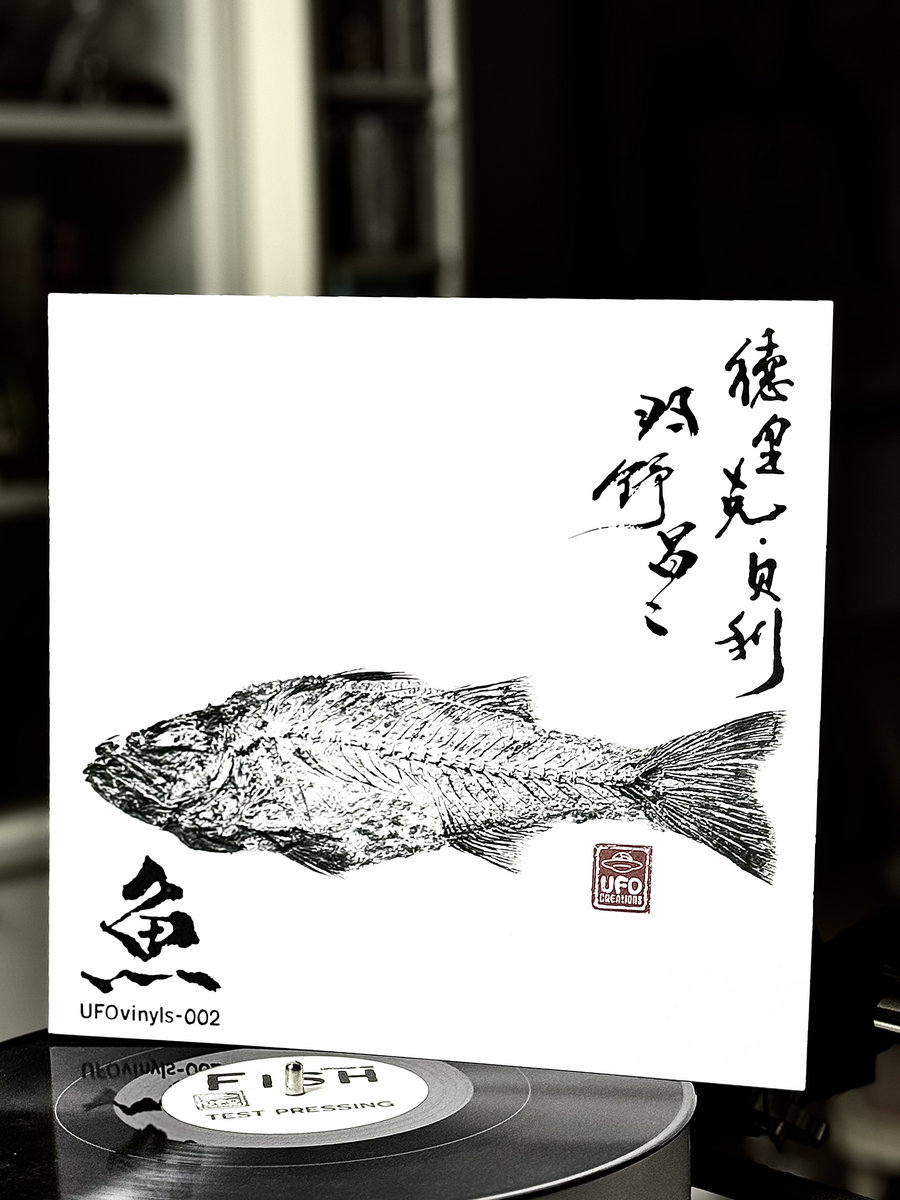 德里克·貝利
羽野昌二
UFO
CREATIONS
魚
UFOvinyls-002
FISH
TEST PRESSING